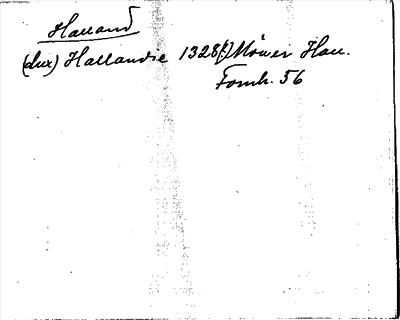 Halland
(dux) Hallandie 1328(?) Möwer Han.
Fornh. 56